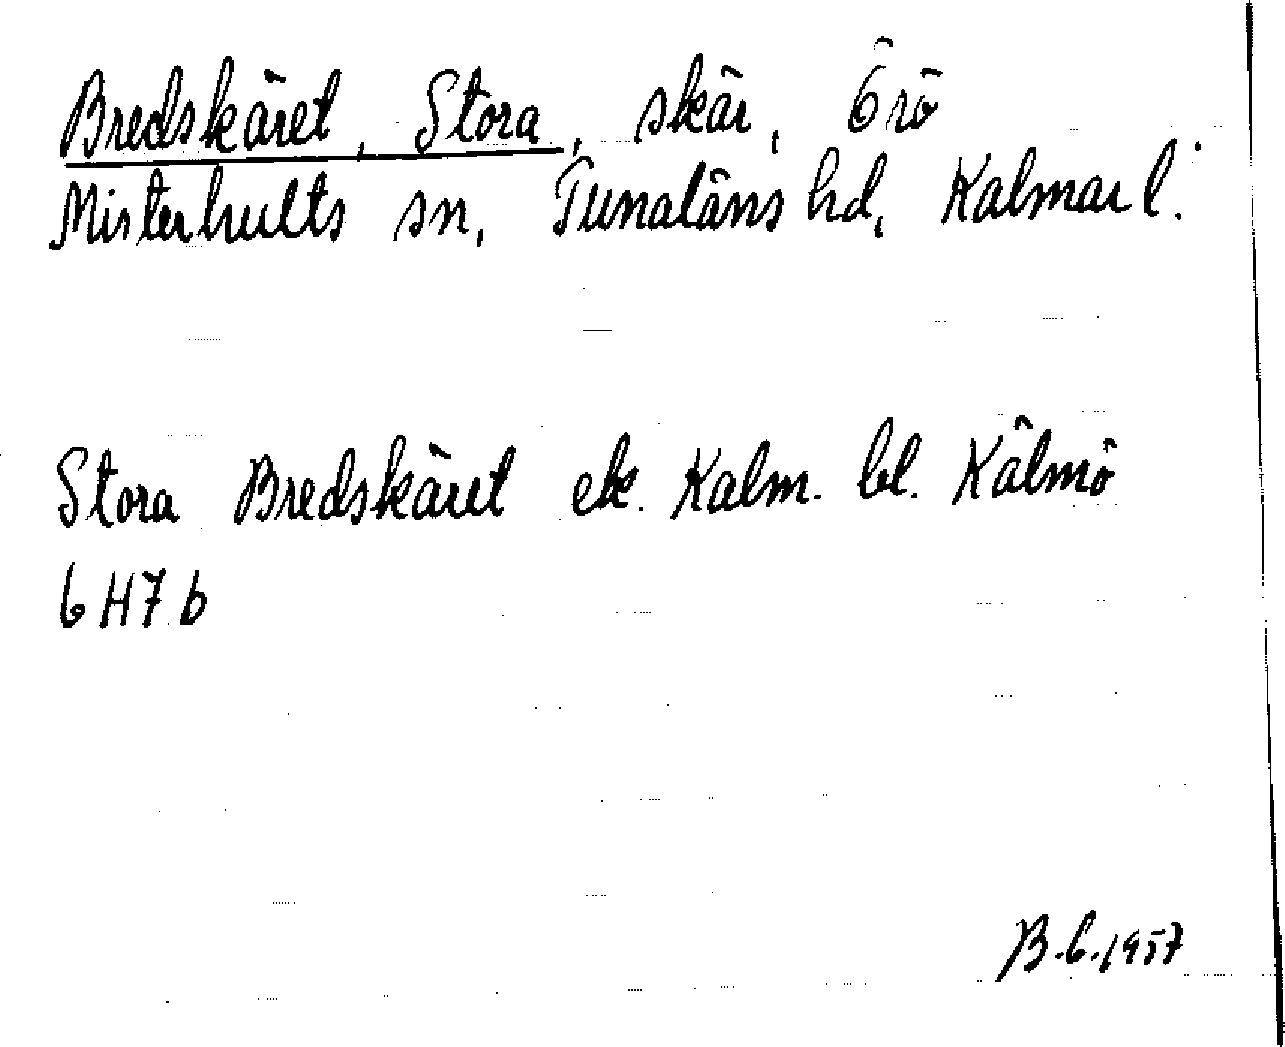 Bredskäret, Stora, skär, Örö
Misterhults sn, Tunaläns hd, Kalmar l.
Stora Bredskäret ek. Kalm. bl. Kälmö
6 H7 b
B.G.1957